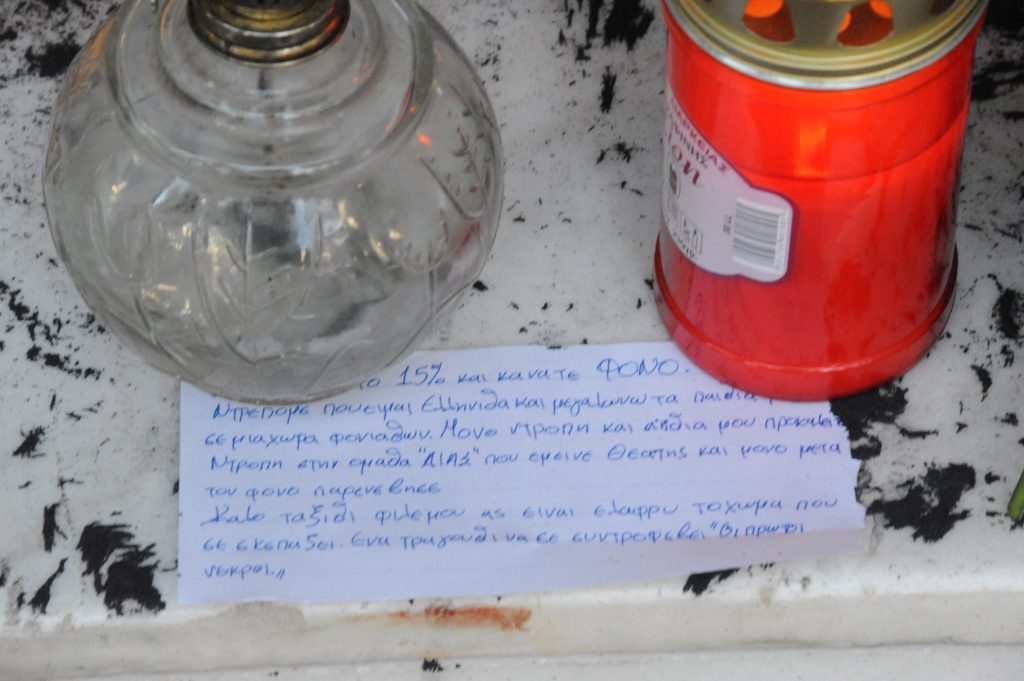 15% και κανατε ΦΟΝΟ.
Ντρεπομε που ειμαι Ελληνιδα και μεγαλωνω τα παιδια
σε μια χωρα φονιαδων. Μονο ντροπη και αηδια μου προκαλειτε
Ντροπη στην ομαδα "ΔΙΑΣ" που εμεινε Θεατης και μονο μετα
τον φονο παρενεβησε
Καλο ταξιδι φιλε μου ας ειναι ελαφρυ το χωμα που
σε σκεπαζει. Ενα τραγουδι να σε συντροφευει "Οι πρωτοι
νεκροι"